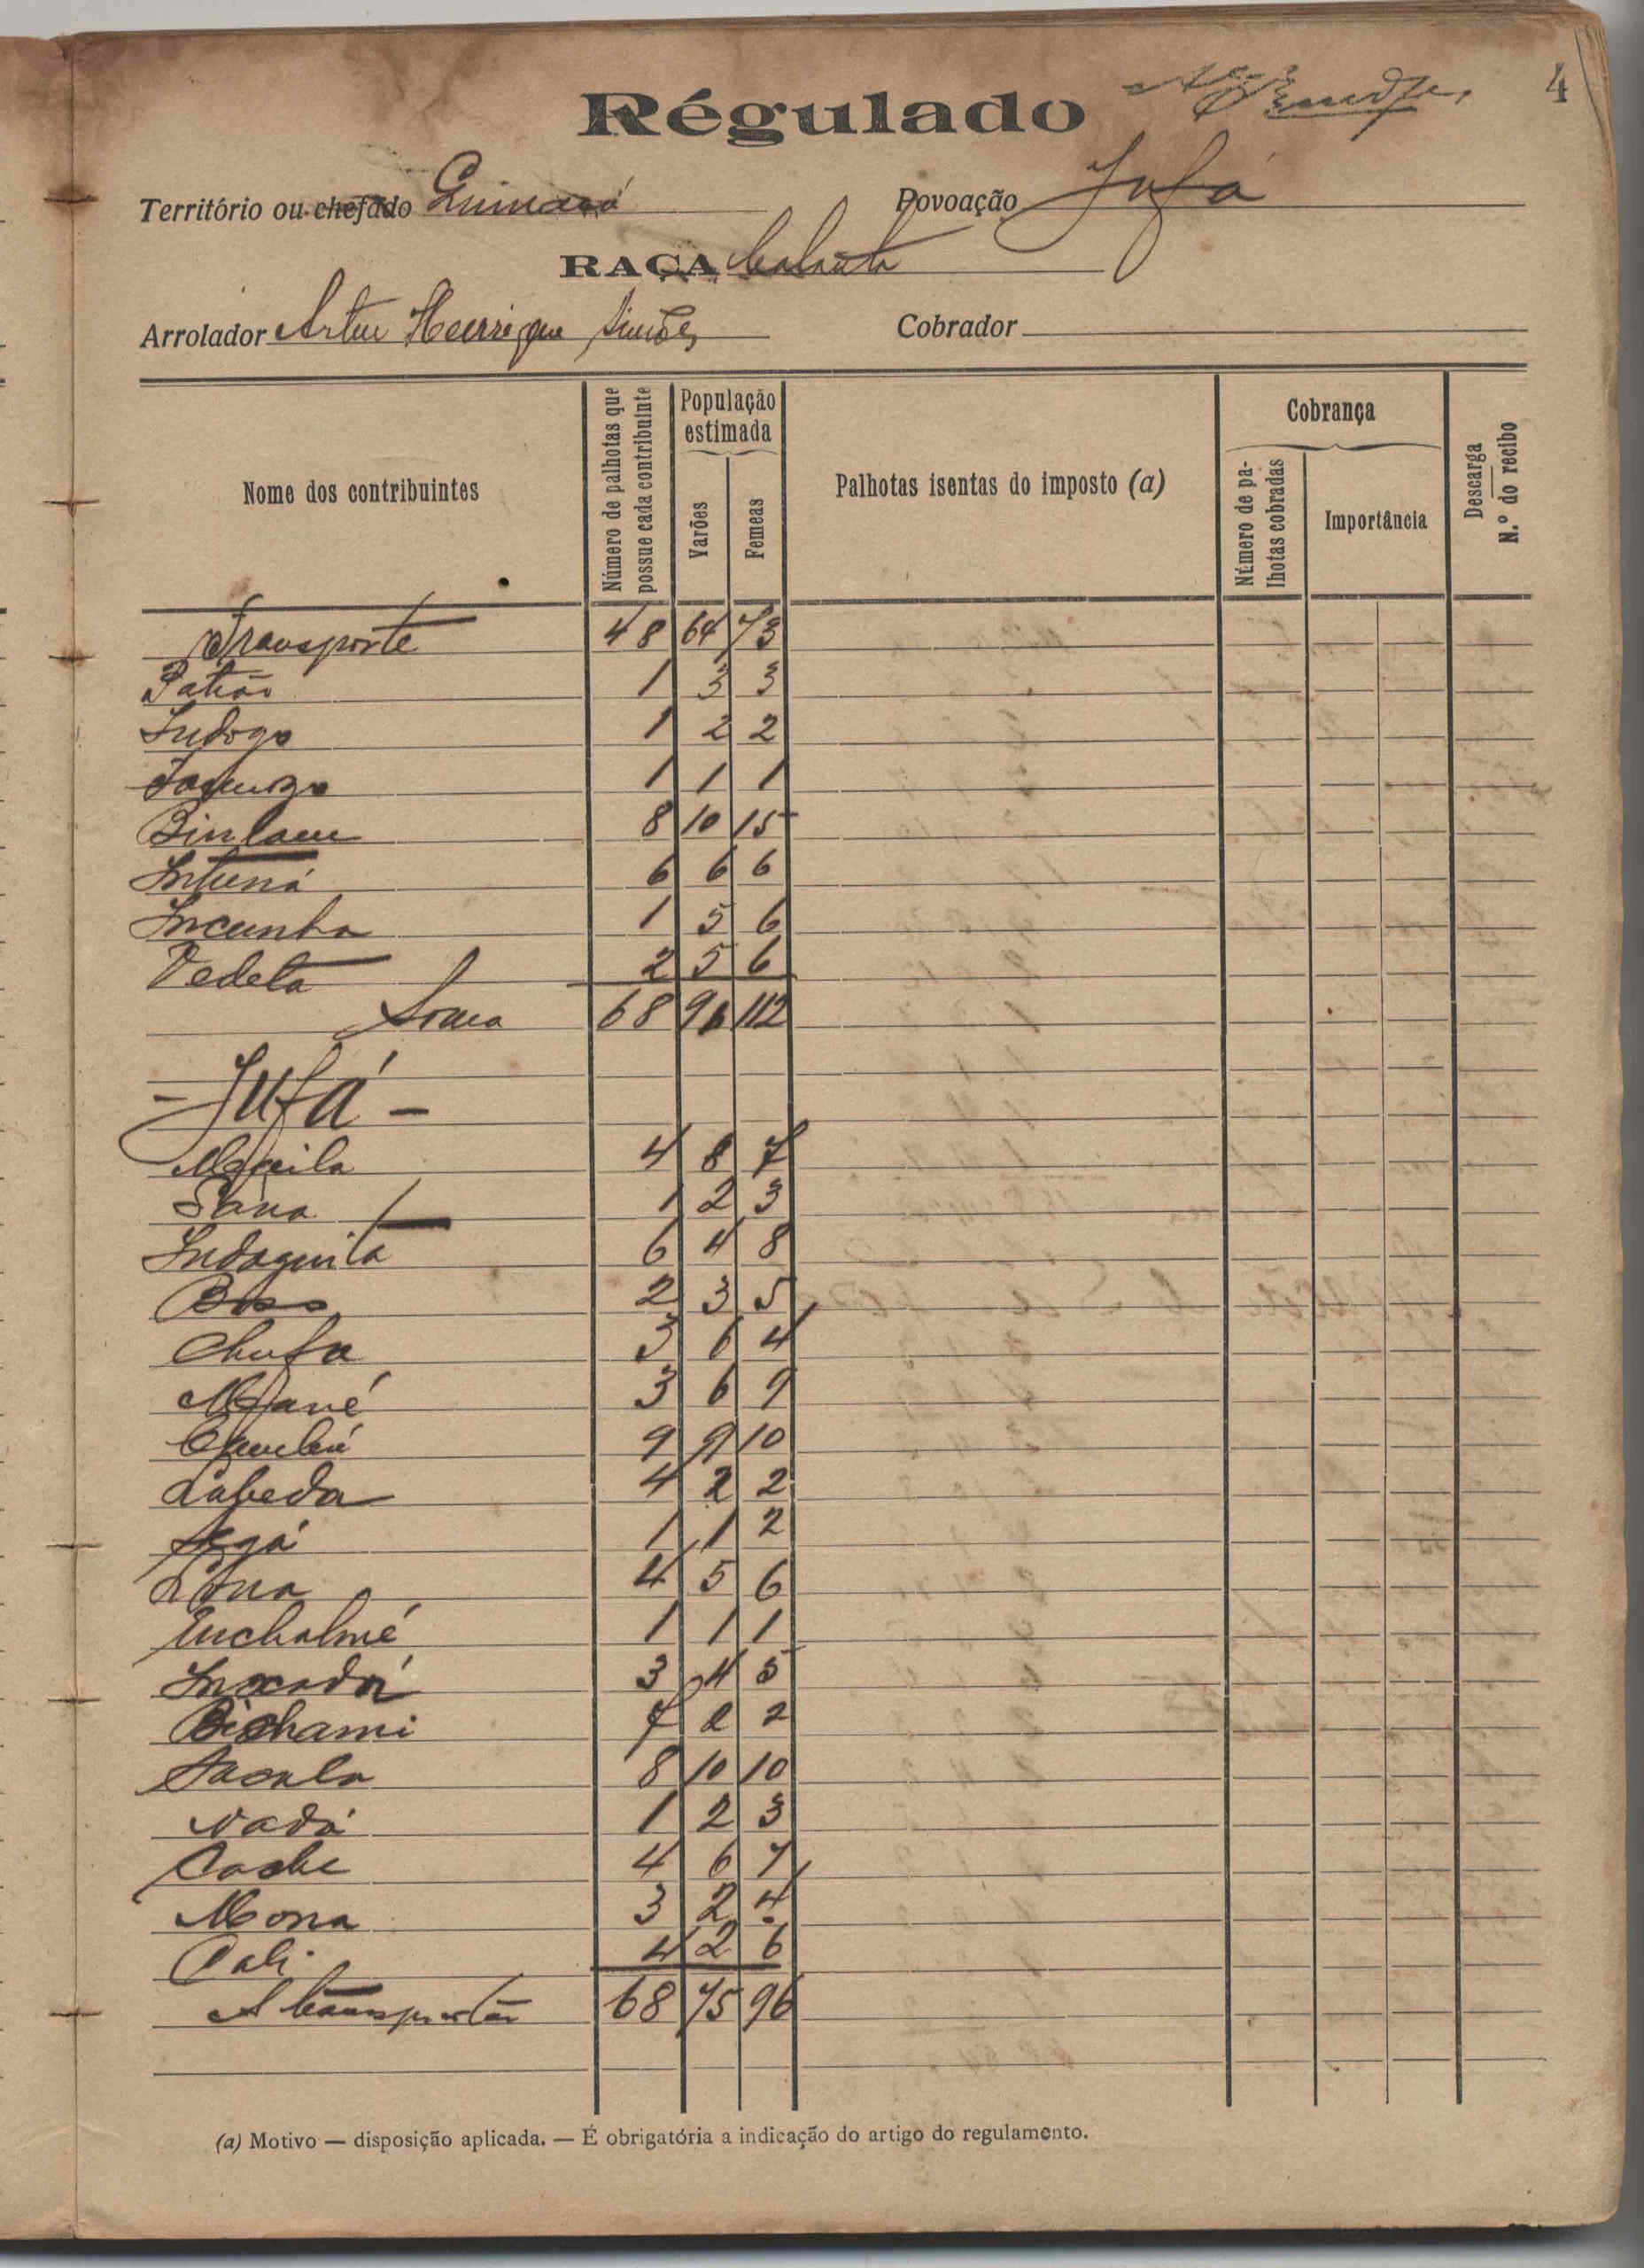 4
Régulado
Território ou chefado
Povoação Jufá
RAÇA balanta
Arrolador Artur Henrique Simões
Cobrador
Nome dos contribuintes
Número de palhotas que possue cada contribuinte
População estimada
Varões
Femeas
Palhotas isentas do imposto (a)
Cobrança
Número de palhotas cobradas
Importância
Descarga
N.º do recibo
Transporte 48 64 73
Patrão 1 3 3
Indogo 1 2 2
1 1 1
Binlam 8 10 15
Intuná 6 6 6
Incunha 1 5 6
Vedeta 2 5 6
Soma 68 96 112
- Jufá -
Mquila 4 8 7
Sana 1 2 3
Indaguita 6 4 8
Boss 2 3 5
Chufa 3 6 4
Mané 3 6 9
9 9 10
Labeda 4 2 2
Segá 1 1 2
Lona 4 5 6
Enchalmé 1 1 1
3 4 5
Bichami 7 2 2
Sacula 8 10 10
Nadá 1 2 3
Cache 4 6 7
Mona 3 2 4
Cali 4 2 6
A transportar 68 75 96
(a) Motivo — disposição aplicada. — É obrigatória a indicação do artigo do regulamento.